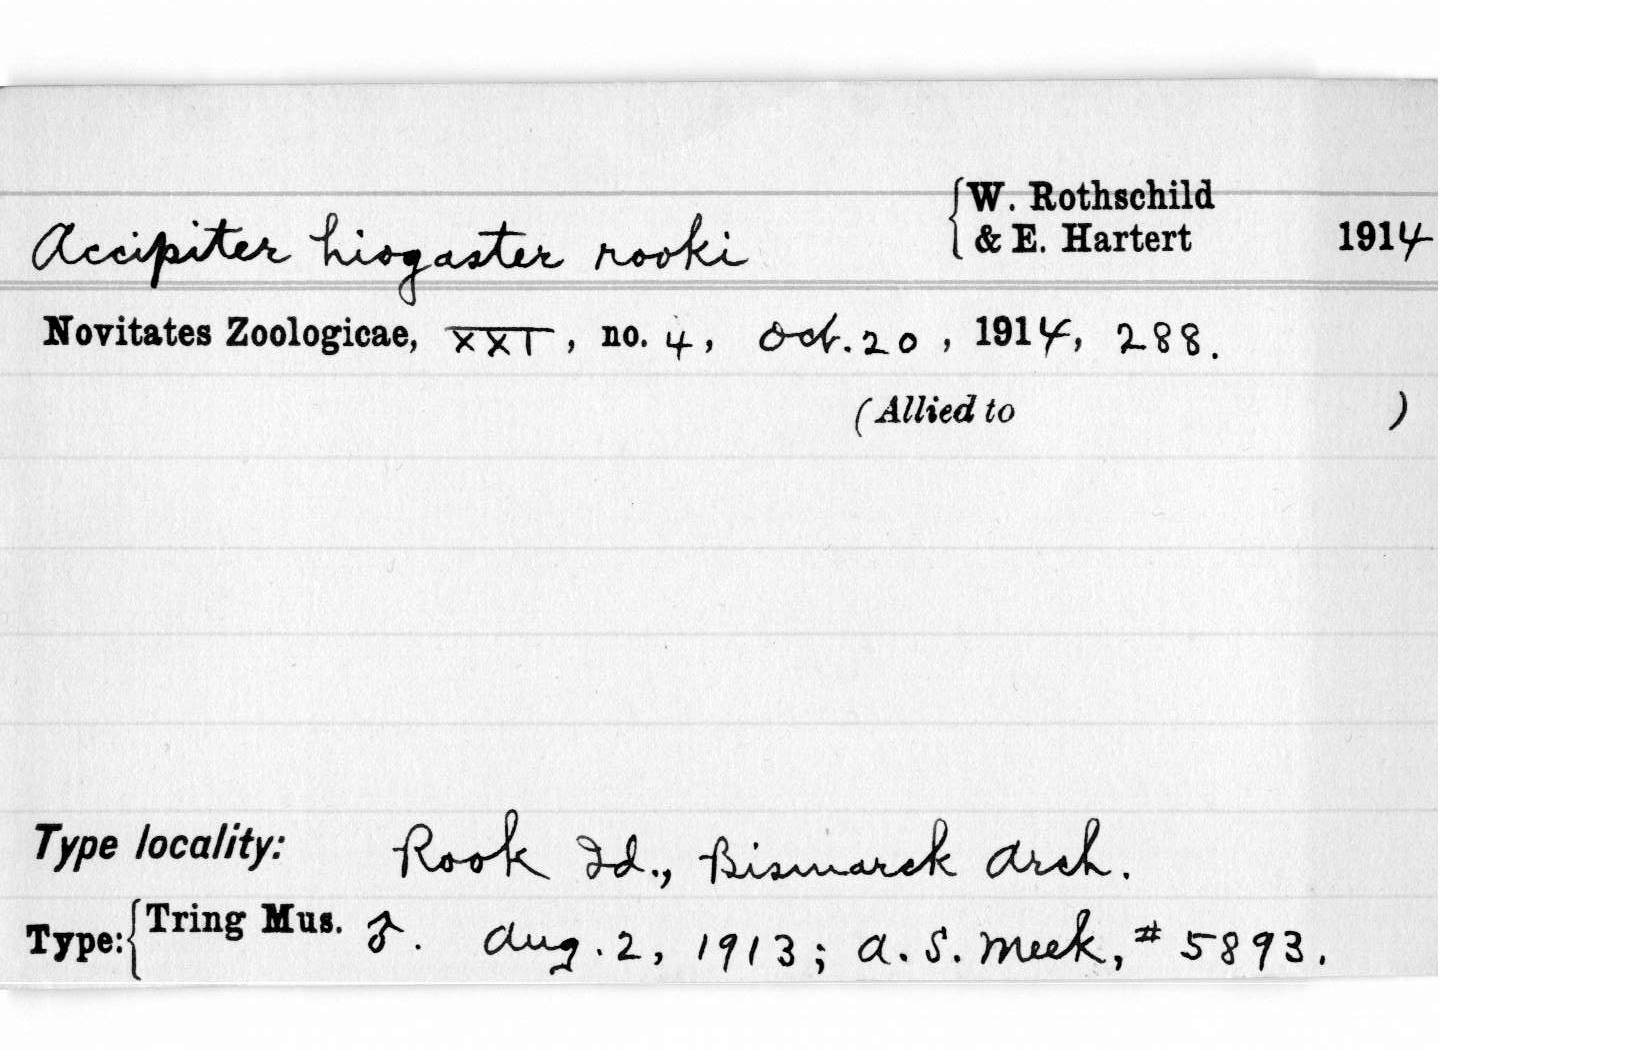 Accipiter hiogaster rooki {W. Rothschild & E. Hartert 1914
Novitates Zoologicae, XXI, no. 4, Oct. 20, 1914, 288.
(Allied to )
Type locality: Rook Id., Bismarck Arch.
Type: {Tring Mus. ♂. Aug. 2, 1913; A. S. Meek, # 5893.